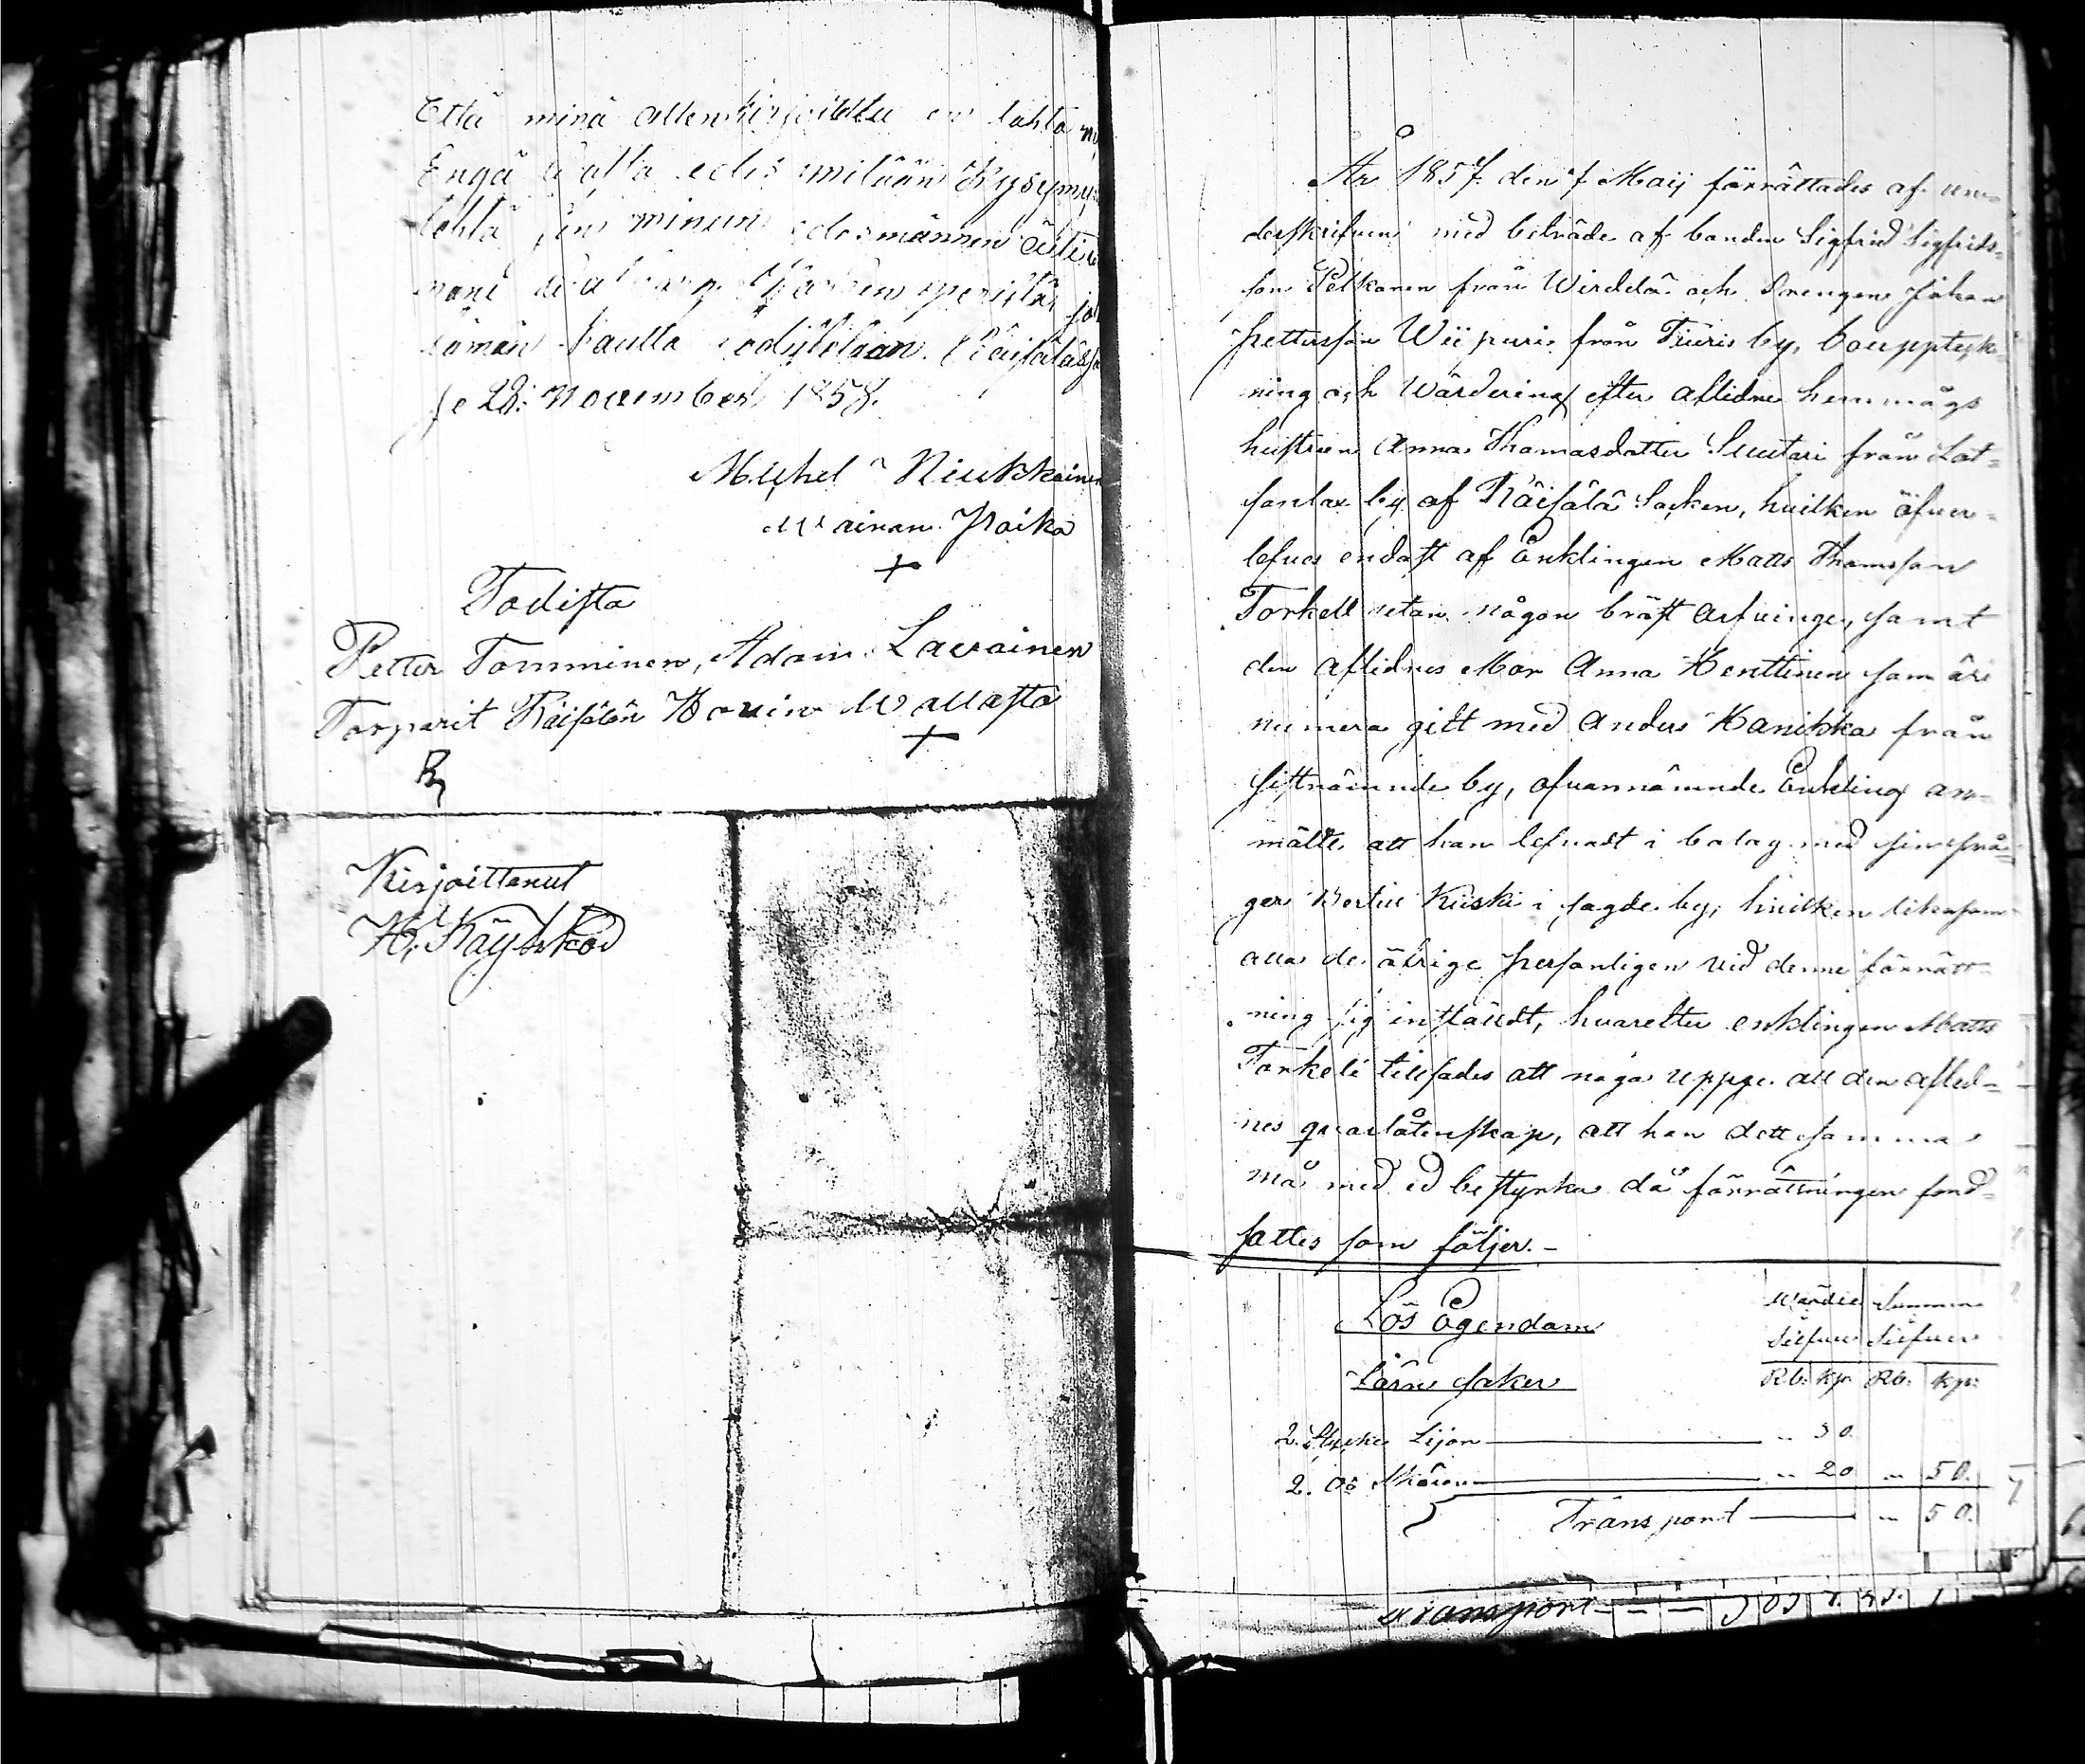 Että minä allenkirjoitettu en tahto
Engä edes milään Kysymys
tehtä minun edesmännen äiti
peristä jo
tämän kautta todistetaan. Räisälässä
se 28: November 1858.
Michel Niukkain
Wainan Poika
+
Todista
Petter Tomminen, Adam Lavoinen
Torparit Räisälän Hovin Mallasta
+
Kirjoittanut
H. Käyhkö
År 1857 den 7 Maij förrättades af un-
derskrifven med biträde af bonden Sigfrid Sigfrids-
son Pelkonen från Wirdelä och Drengen Johan
Pettersson Wiipuri från Tiuris by, bouppteck-
ning och Wärdering efter aflidne hemmågs
hustrun Anna Thomasdotter Suutari från
by af Räisälä Socken, hvilken öfver-
lefves endast af Enklingen Matts Thomsson
Torkell utan någon bröst arfvinge, samt
den aflidnes Mor Anna Henttinen som är
numera gift med Anders Kanikka från
sistnämnde by, ofvannämnde Enkling an-
mälte att han lefvadt i bolag med sin svå-
ger Bertil Kiiski i sagde by, hvilken likasom
alla de öfrige personligen vid denne förrätt-
ning sig instäldt, hvarefter enklingen Matts
Torkeli tillsades att noga uppge all den afled-
nes qvarlåtenskap, att han dett samma
må med ed bestyrka då förrättningen
sattes som följer. -
Lös Egendom
Wärdie Summa
Silfver Silfver
Järn saker
Rb. Kp. Rb. Kp.
2. Stycke Lijor - " 30.
2. Do Skäror - " 20 " 50.
Transport - " 50.
Transport